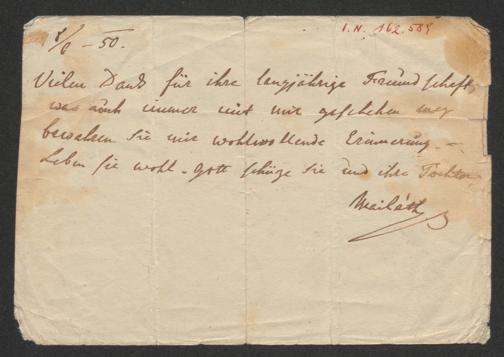 I.N. 162.505
8/6 – 50.
Vielen Dank für ihre langjährige Freundschaft,
was auch immer mit mir geschehen mag
bewahren Sie mir wohlwollende Erinnerung –
Leben sie wohl – Gott schüze Sie und ihre Tochter
Mailáth